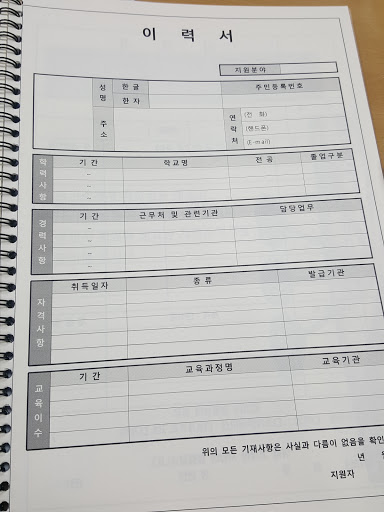 이 력 서
지원분야
성명 한글 주민등록번호
한자
주소 연락처 (전 화)
(핸드폰)
(E-mail)
학력사항 기 간 학교명 전 공 졸업구분
~
~
경력사항 기 간 근무처 및 관련기관 담당업무
~
~
~
자격사항 취득일자 종 류 발급기관
교육이수 기 간 교육과정명 교육기관
위의 모든 기재사항은 사실과 다름이 없음을 확인
년
지원자